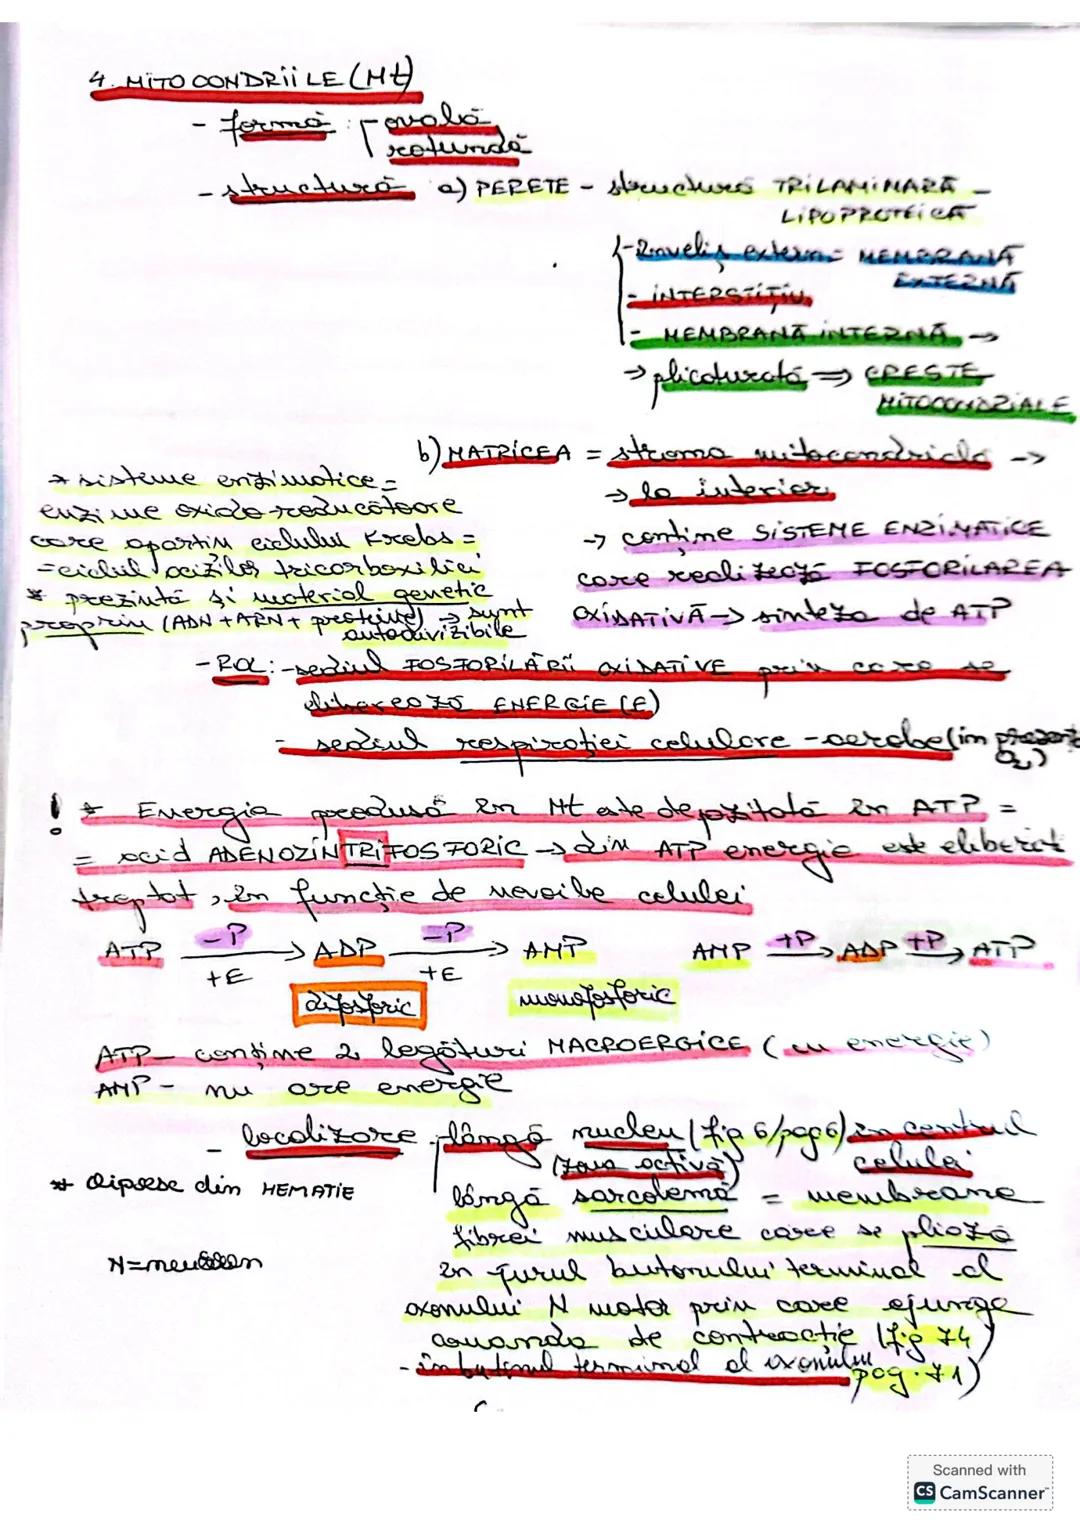 4. MITOCONDRIILE (Mt)
- formă: ovală
rotundă
- structură a) PERETE - structură TRILAMINARĂ -
LIPOPROTEICĂ
- înveliș extern = MEMBRANĂ
EXTERNĂ
- INTERSTIȚIU
- MEMBRANĂ INTERNĂ →
→ plicaturată ⇒ CRESTE
MITOCONDRIALE
b) MATRICEA = stroma mitocondriala ->
→ la interior
-> conține SISTEME ENZIMATICE
care realizează FOSFORILAREA
OXIDATIVĂ → sinteza de ATP
* sisteme enzimatice =
enzime oxido-reducătoare
care aparțin ciclului Krebs =
= ciclul acizilor tricarboxilici
* prezintă și material genetic
propriu (ADN + ARN + proteine) → sunt
autodivizibile
- ROL: - sediul FOSFORILĂRII OXIDATIVE prin care se
eliberează ENERGIE (E)
- sediul respirației celulare - aerobe (în prezența
O₂)
! * Energia produsă în Mt este depozitată în ATP =
= acid ADENOZINTRIFOSFORIC → din ATP energia este eliberată
treptat, în funcție de nevoile celulei
ATP -P/+E → ADP -P/+E → AMP AMP +P → ADP +P → ATP
difosforic monofosforic
ATP - conține 2 legături MACROERGICE (cu energie)
AMP - nu are energie
- localizare - lângă nucleu (fig 6/pag 6) în centrul
(zona activă) celulei
* Lipsesc din HEMATIE
lângă sarcolemă = membrana
fibrei musculare care se pliază
N = neuron
în jurul butonului terminal al
axonului N motor prin care ajunge
comanda de contracție (fig 74
- în butonul terminal al axonului pag. 71)
Scanned with
CS CamScanner